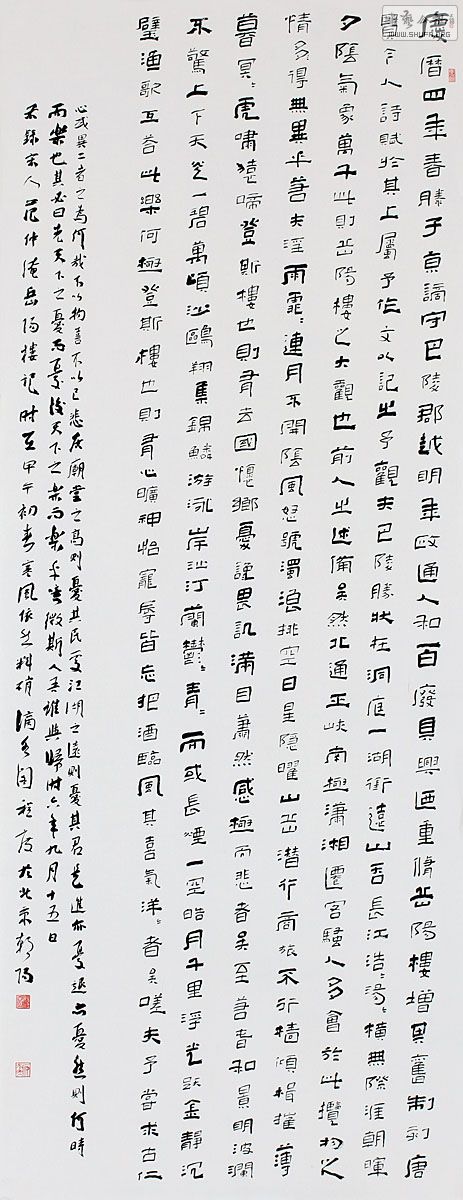 慶曆四年春滕子京謫守巴陵郡越明年政通人和百廢具興廼重脩岳陽樓增其舊制刻唐
賢今人詩賦於其上屬予作文以記之予觀夫巴陵勝狀在洞庭一湖銜遠山吞長江浩〻湯〻橫無際涯朝暉
夕陰氣象萬千此則岳陽樓之大觀也前人之述備矣然北通巫峽南極瀟湘遷客騷人多會於此攬物之
情多得無異乎若夫淫雨霏〻連月不開陰風怒號濁浪排空日星隱曜山岳潛行商旅不行檣傾楫摧薄
暮冥〻虎嘯猿啼登斯樓也則有去國懷鄉憂讒畏譏滿目蕭然感極而悲者矣至若春和景明波瀾
不驚上下天光一碧萬頃沙鷗翔集錦鱗游泳岸沚汀蘭鬱〻青〻而或長煙一空皓月千里浮光躍金靜沉
璧漁歌互答此樂何極登斯樓也則有心曠神怡寵辱皆忘把酒臨風其喜氣洋〻者矣嗟夫予嘗求古仁
心或異二者之為何哉不以物喜不以己悲居廟堂之高則憂其民處江湖之遠則憂其君是進亦憂退亦憂然則何時
而樂也其必曰先天下之憂而憂後天下之樂而樂乎噫微斯人吾誰與歸時六年九月十五日
右錄宋人范仲淹岳陽樓記時在甲午初春寒風依然料峭閣程度於北京朝陽
WWW.SHUFA.ORG